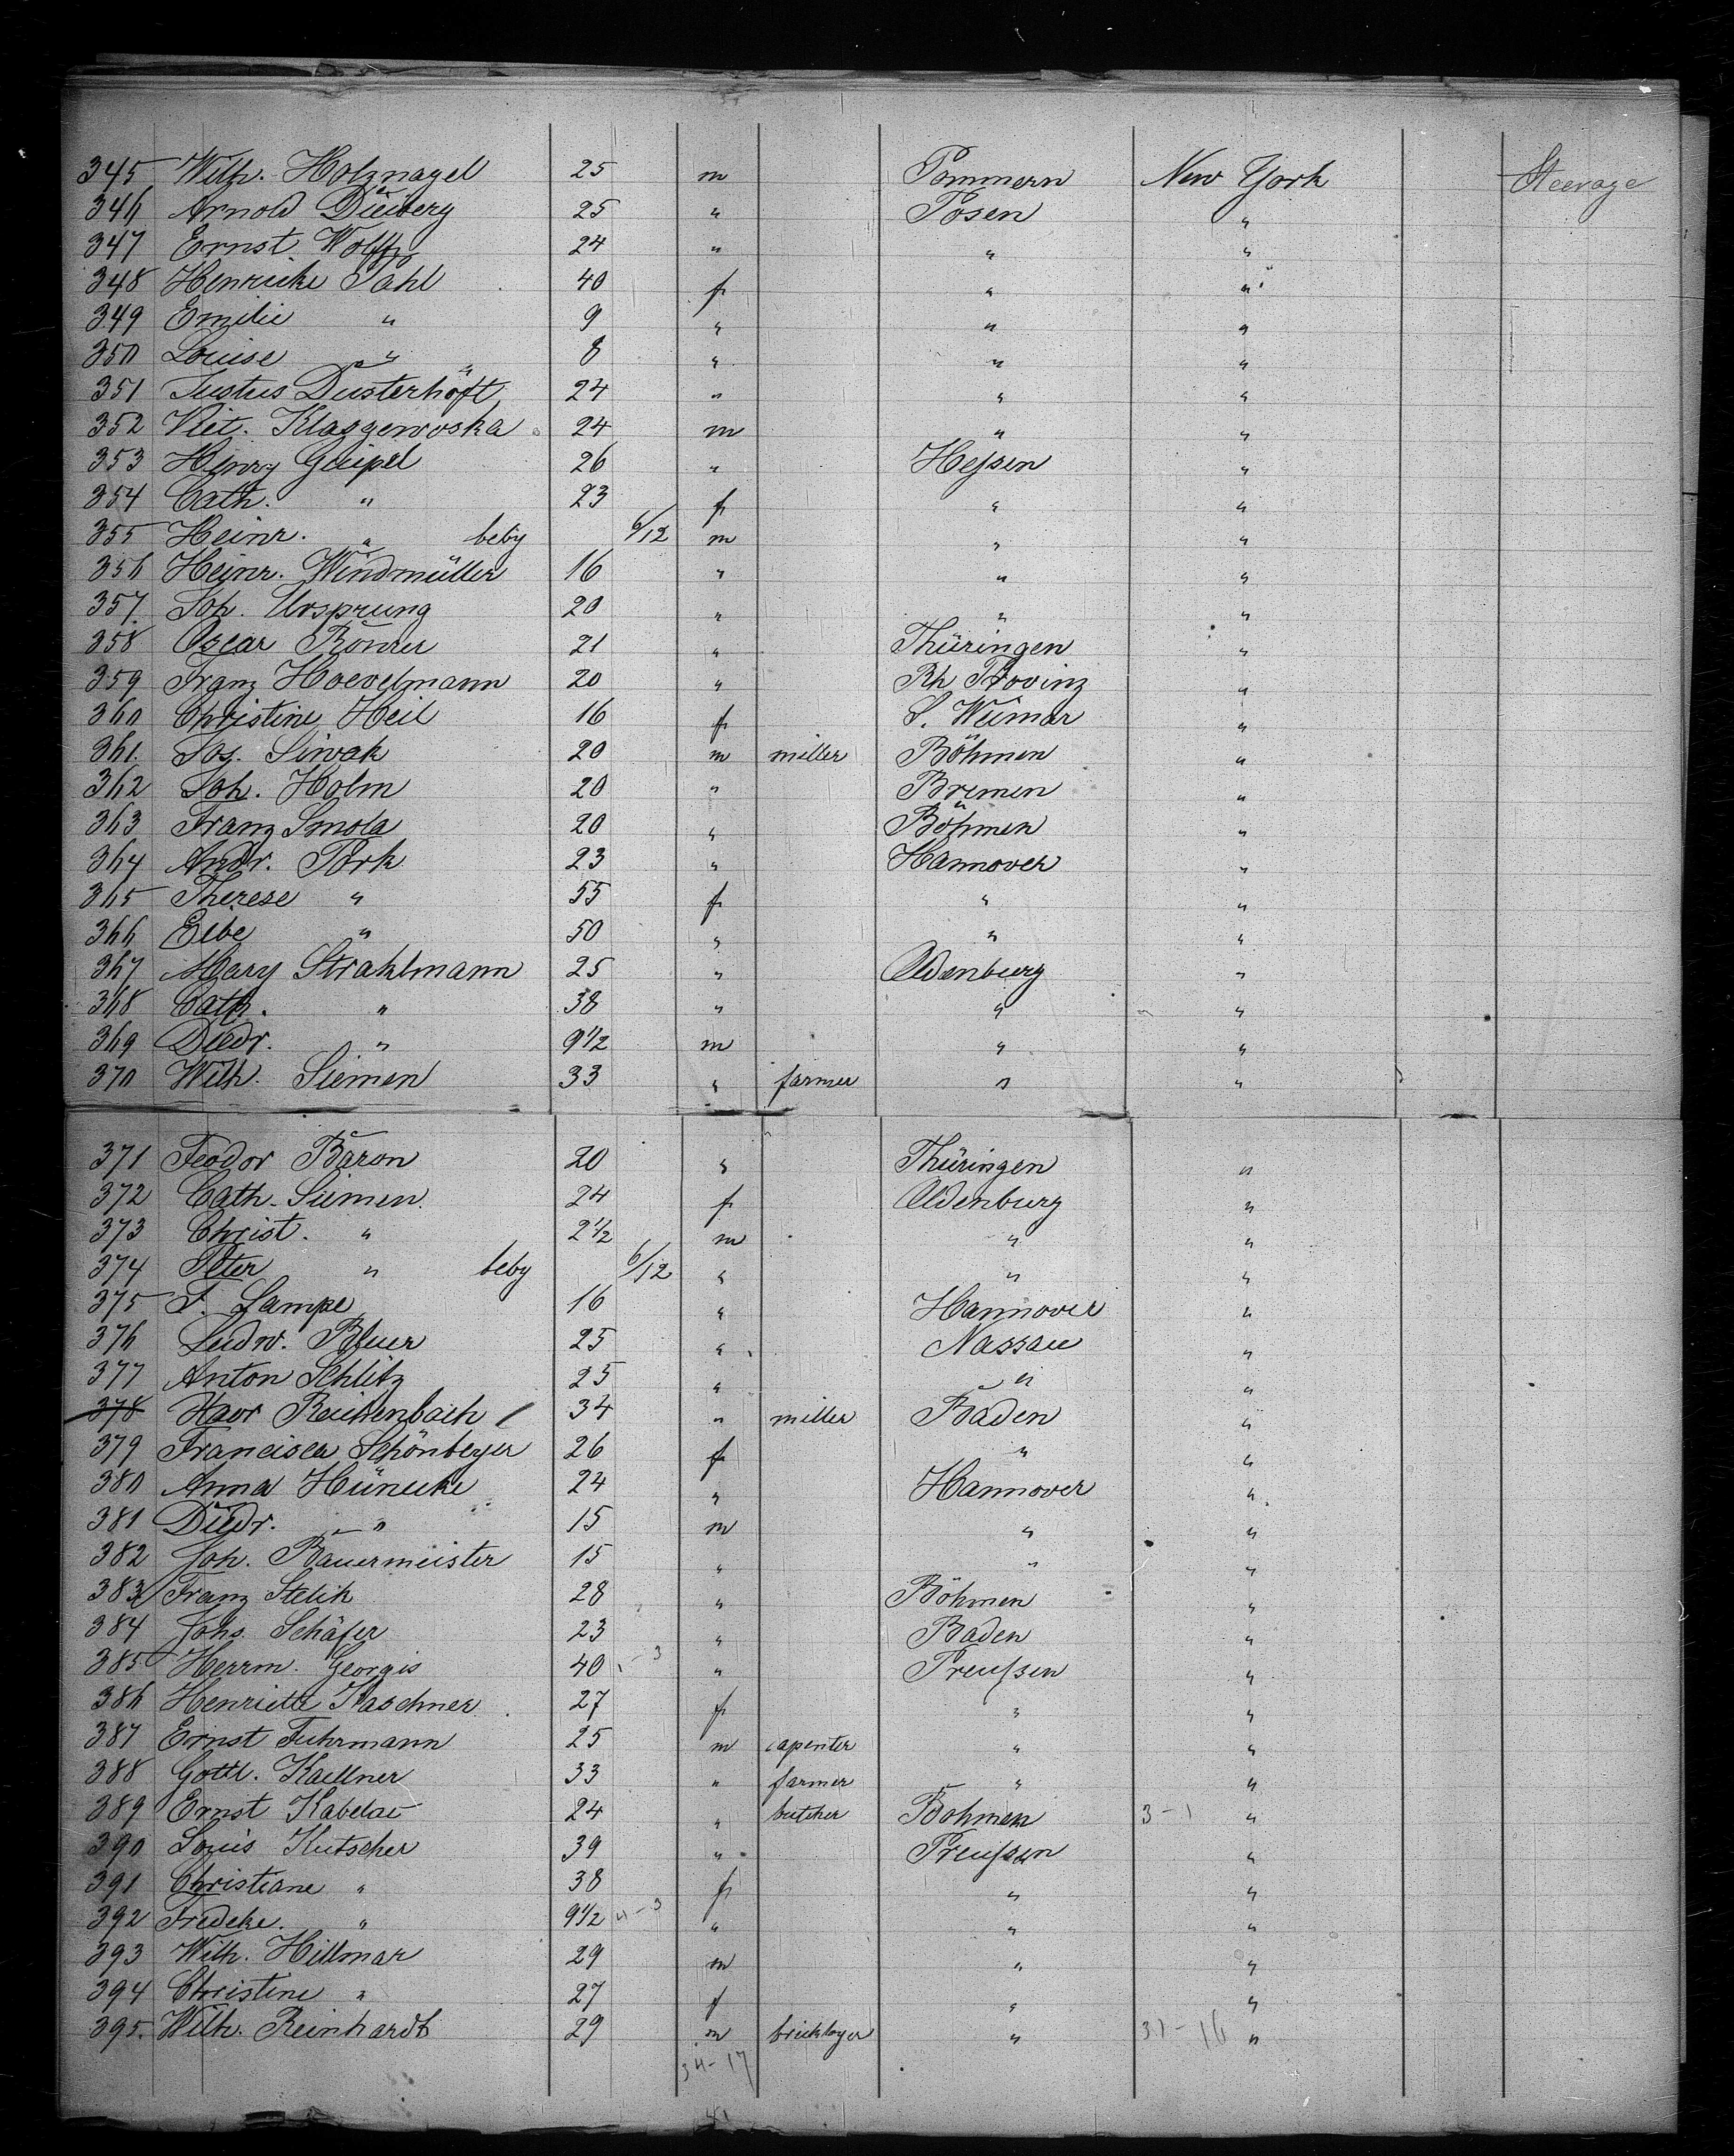 345 Wilh. Holznagel 25 m Pommern New York Steerage
346 Arnold Düiberg 25 " Posen "
347 Ernst Wolff 24 " " "
348 Henricke Pahl 40 f " "
349 Emilie " 9 " " "
350 Louise " 8 " " "
351 Justus Dusterhöft 24 " " "
352 Vict. Klaggewoska 24 m " "
353 Henry Geipel 26 " Hessen "
354 Cath. " 23 f " "
355 Heinr. " beby 6/12 m " "
356 Heinr. Windmüller 16 " " "
357 Joh. Ursprung 20 " " "
358 Oscar Römer 21 " Thüringen "
359 Franz Hoevelmann 20 " Rh Provinz "
360 Christine Heil 16 f S. Weimar "
361. Jos. Siwak 20 m miller Böhmen "
362 Joh. Holm 20 " Bremen "
363 Franz Smola 20 " Böhmen "
364 Andr. Pork 23 " Hannover "
365 Therese " 55 f " "
366 Eibe " 50 " " "
367 Mary Strahlmann 25 " Oldenburg "
368 Cath. " 38 " " "
369 Diedr. " 9 1/2 m " "
370 Wilh. Siemen 33 " farmer " "
371 Feodor Baron 20 " Thüringen "
372 Cath. Siemen 24 f Oldenburg "
373 Christ. " 2 1/2 m " "
374 Peter " beby 6/12 " " "
375 F. Lampe 16 " Hannover "
376 Ludw. Bluer 25 " Nassau "
377 Anton Schlitz 25 " " "
378 Xavr Reichenbach 34 " miller Baden "
379 Francisca Schönberger 26 f " "
380 Anna Hünecke 24 " Hannover "
381 Diedr. " 15 m " "
382 Joh. Bauermeister 15 " " "
383 Franz Stelik 28 " Böhmen "
384 Johs. Schäfer 23 " Baden "
385 Herrm. Georgis 40 " Preussen "
386 Henriette Kaschner 27 f " "
387 Ernst Fuhrmann 25 m capenter " "
388 Gottl. Kaellner 33 " farmer " "
389 Ernst Kabelac 24 " butcher Bohmen 3-1 "
390 Louis Kutscher 39 " Preussen "
391 Christiane " 38 f " "
392 Fredcke. " 9 1/2 4-3 " " "
393 Wilh. Hillmar 29 m " "
394 Christine " 27 f " "
395. Wilh. Reinhardt 29 m bricklayer " 31-16 "
34-17